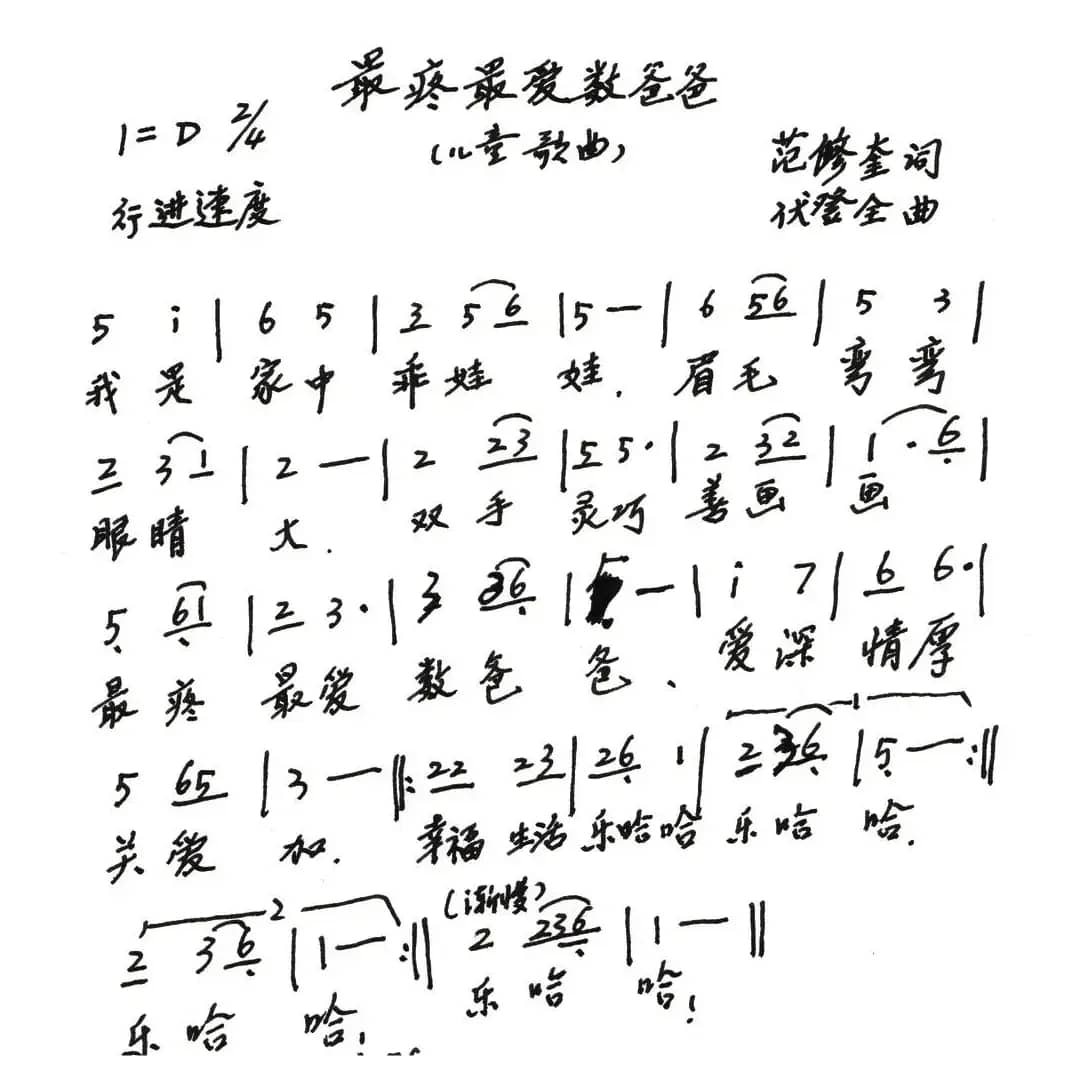 最疼最爱数爸爸
1=D 2/4
(儿童歌曲)
范修奎词
行进速度
伏登全曲
5 i | 6 5 | 3 5 6 | 5 — | 6 56 | 5 3 |
我是 家中 乖娃 娃. 眉毛 弯弯
2 3 1 | 2 — | 2 23 | 5 5· | 2 32 | 1 · 6 |
眼睛 大. 双手 灵巧 善画 画
5 61 | 2 3· | 3 36 | — | i 7 | 6 6· |
最疼 最爱 数爸 爸、 爱深 情厚
5 65 | 3 — ‖: 22 23 | 26 1 | 2 36 | 5 — :‖
关爱 加. 幸福 生活 乐哈哈 乐哈 哈.
2
(渐慢)
2 3 6 | 1 — :‖ 2 236 | 1 — ‖
乐哈 哈! 乐哈 哈!